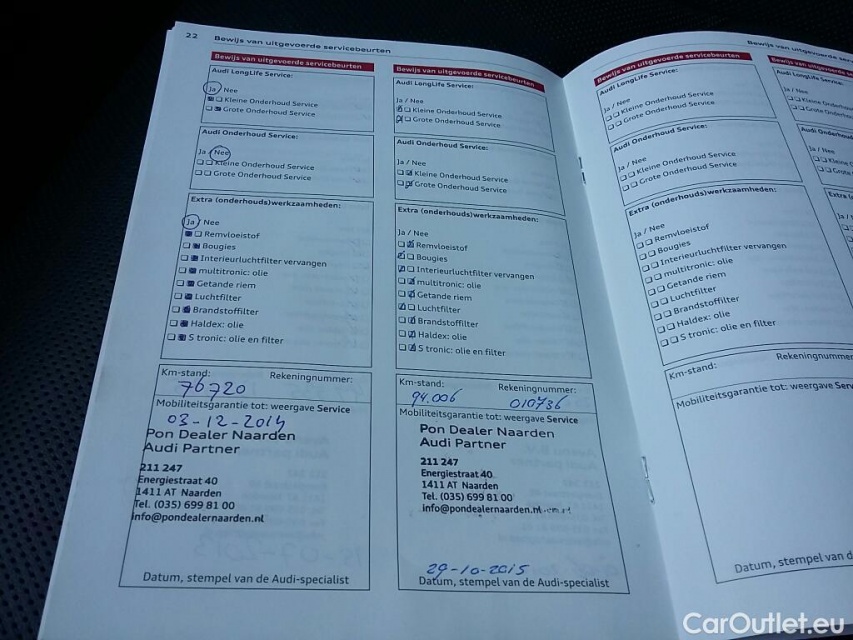 22 Bewijs van uitgevoerde servicebeurten
Bewijs van uitgevoerde servicebeurten
Audi LongLife Service:
Ja / Nee
Kleine Onderhoud Service
Grote Onderhoud Service
Audi Onderhoud Service:
Ja / Nee
Kleine Onderhoud Service
Grote Onderhoud Service
Extra (onderhouds)werkzaamheden:
Ja / Nee
Remvloeistof
Bougies
Interieurluchtfilter vervangen
multitronic: olie
Getande riem
Luchtfilter
Brandstoffilter
Haldex: olie
S tronic: olie en filter
Km-stand: Rekeningnummer:
76720
Mobiliteitsgarantie tot: weergave Service
03-12-2014
Pon Dealer Naarden
Audi Partner
211 247
Energiestraat 40
1411 AT Naarden
Tel. (035) 699 81 00
info@pondealernaarden.nl
Datum, stempel van de Audi-specialist
Bewijs van uitgevoerde servicebeurten
Audi LongLife Service:
Ja / Nee
Kleine Onderhoud Service
Grote Onderhoud Service
Audi Onderhoud Service:
Ja / Nee
Kleine Onderhoud Service
Grote Onderhoud Service
Extra (onderhouds)werkzaamheden:
Ja / Nee
Remvloeistof
Bougies
Interieurluchtfilter vervangen
multitronic: olie
Getande riem
Luchtfilter
Brandstoffilter
Haldex: olie
S tronic: olie en filter
Km-stand: Rekeningnummer:
94.006 010736
Mobiliteitsgarantie tot: weergave Service
Pon Dealer Naarden
Audi Partner
211 247
Energiestraat 40
1411 AT Naarden
Tel. (035) 699 81 00
info@pondealernaarden.nl
29-10-2015
Datum, stempel van de Audi-specialist
Bewijs van uitgevoerde
Bewijs van uitgevoerde servicebeurten
Audi LongLife Service:
Ja / Nee
Kleine Onderhoud Service
Grote Onderhoud Service
Audi Onderhoud Service:
Ja / Nee
Kleine Onderhoud Service
Grote Onderhoud Service
Extra (onderhouds)werkzaamheden:
Ja / Nee
Remvloeistof
Bougies
Interieurluchtfilter vervangen
multitronic: olie
Getande riem
Luchtfilter
Brandstoffilter
Haldex: olie
S tronic: olie en filter
Km-stand: Rekeningnummer
Mobiliteitsgarantie tot: weergave Serv
Datum, stempel van d
Bewijs van uitgevoerde
Audi LongLife Service:
Ja / Nee
Kleine Onder
Grote Onderh
Audi Onderhoud
Ja / Nee
CarOutlet.eu